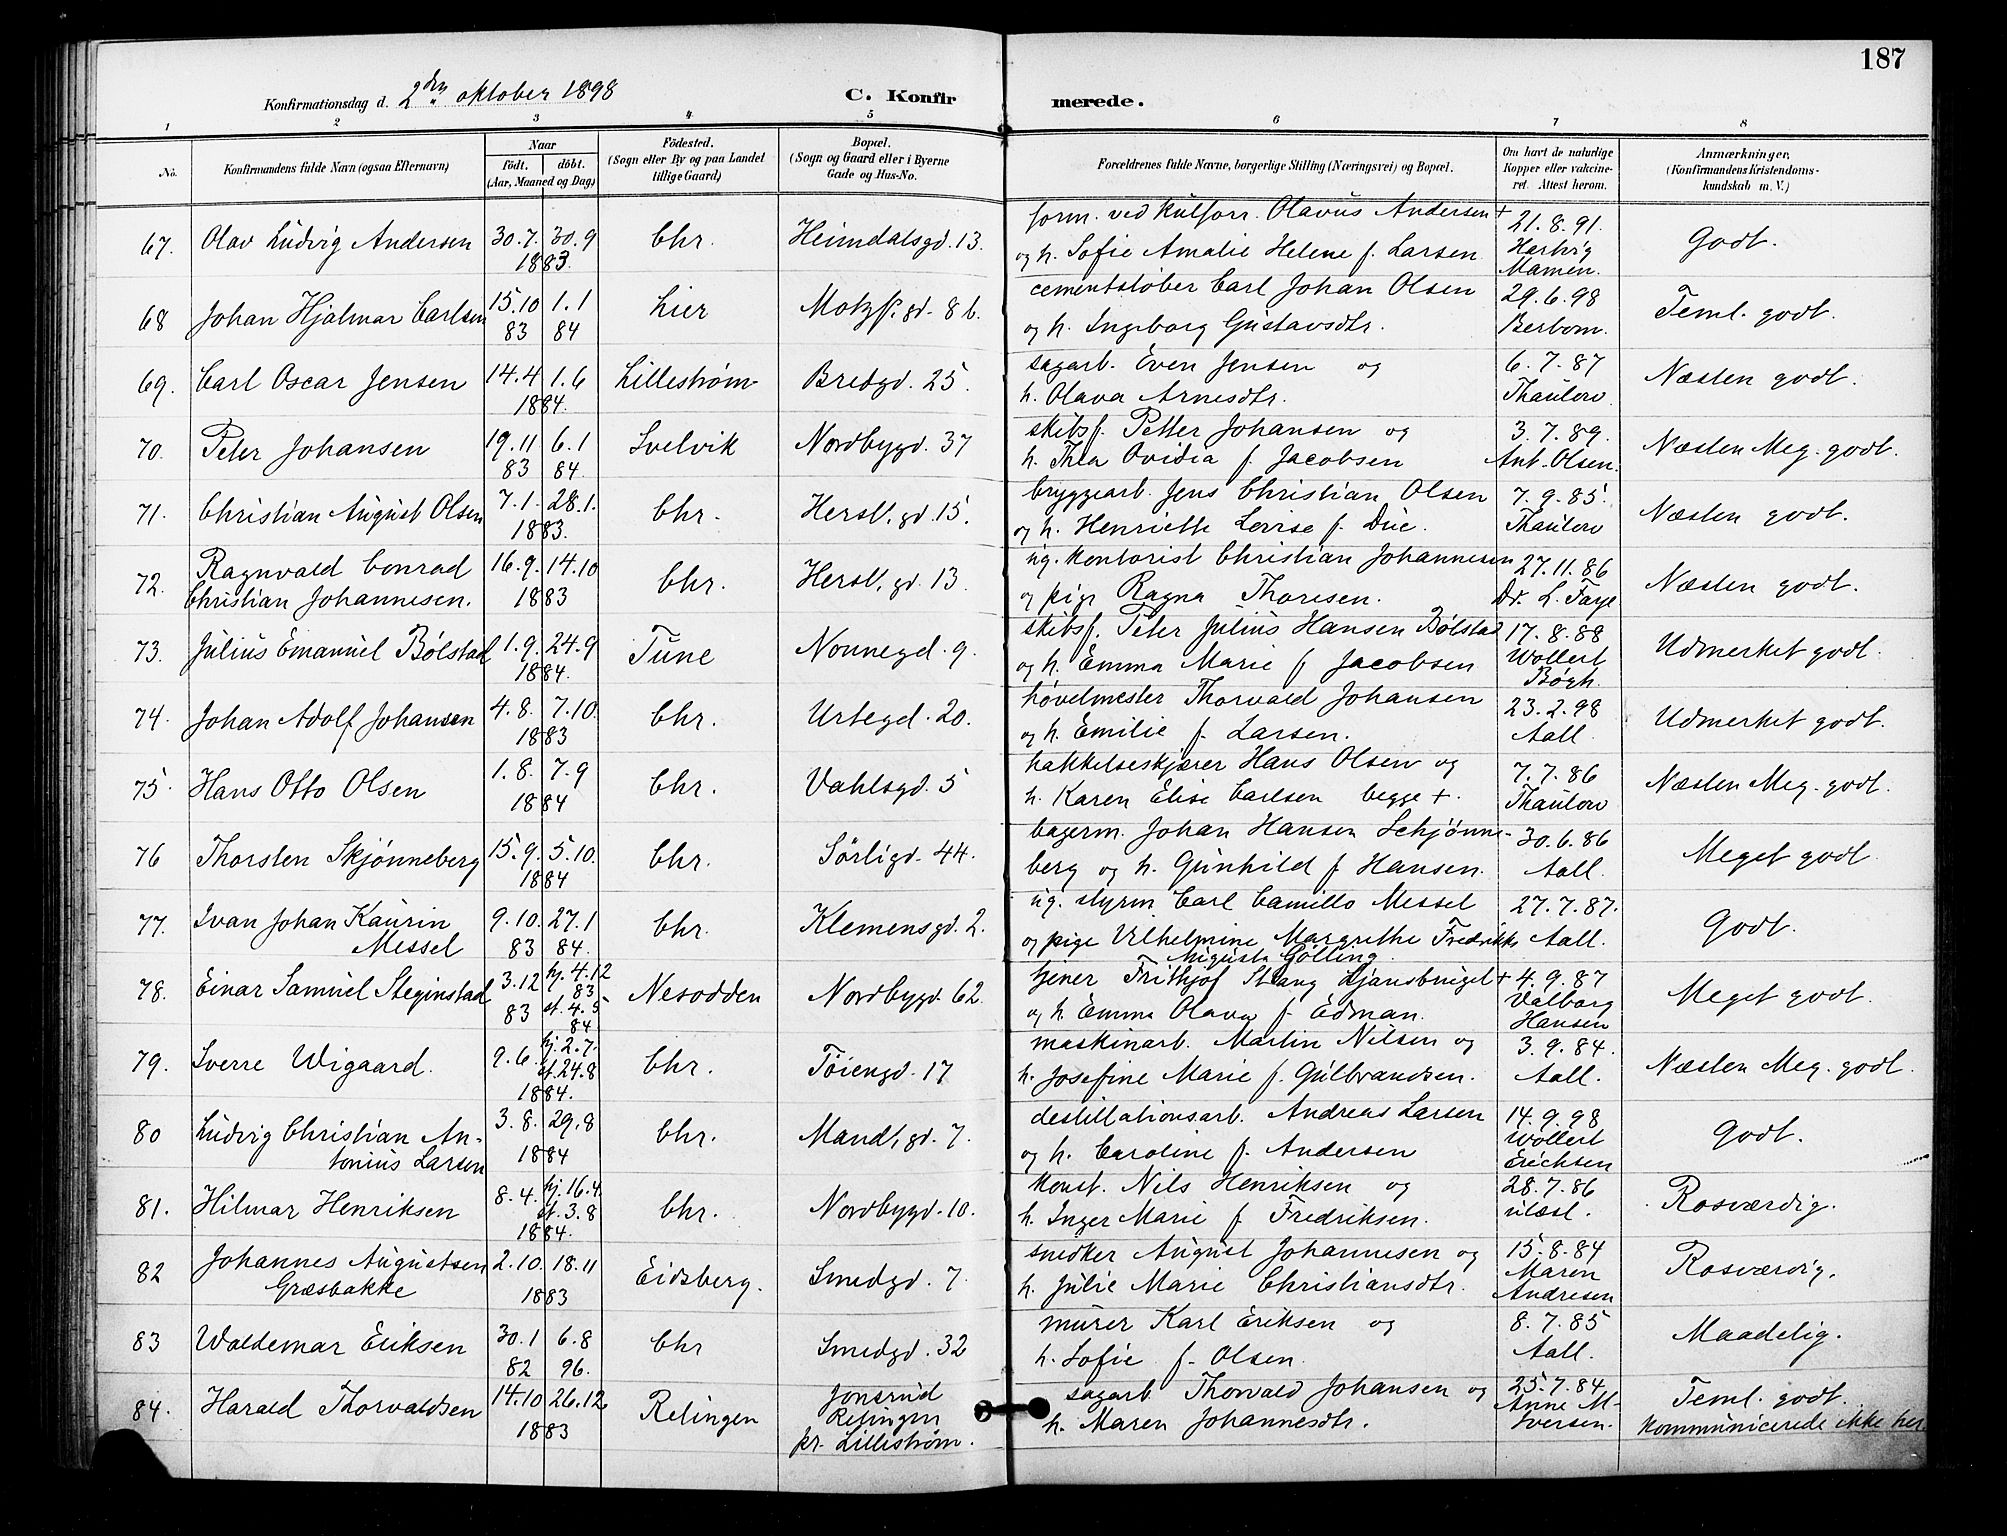 187
Konfirmationsdag d. 2den oktober 1898 C. Konfirmerede.
1 2 3 4 5 6 7 8
No. Konfirmandens fulde Navn (ogsaa Efternavn) Naar födt. döbt. (Aar, Maaned og Dag) Födested. (Sogn eller By og paa Landet tillige Gaard) Bopæl. (Sogn og Gaard eller i Byerne Gade og Hus-No. Forældrenes fulde Navne, borgerlige Stilling (Næringsvei) og Bopæl. Om havt de naturlige Kopper eller vakcineret. Attest herom. Anmærkninger. (Konfirmandens Kristendomskundskab m. V.)
67. Olav Ludvig Andersen 30.7. 30.9 1883. Chr. Heimdalsgd. 13. form. ved kulforr. Olavus Andersen +
og h. Sofie Amalie Helene f. Larsen 21.8.91. Hartvig Mamen. Godt.
68 Johan Hjalmar Carlsen 15.10 83 1.1 84 Lier Motzf. gd. 8 b. cementstøber Carl Johan Olsen
og h. Ingeborg Gustavsdtr. 29.6.98 Berbom. Teml. godt.
69. Carl Oscar Jensen 14.4 1.6 1884. Lillestrøm Bredgd. 25. sagarb. Even Jensen og
h. Olava Arnesdtr. 6.7.87 Thaulow Næsten godt.
70. Peter Johansen 19.11 83 6.1 84. Svelvik Nordbygd. 37 skibsf. Petter Johansen og
h. Thea Ovidia f. Jacobsen 3.7.89. Ant. Olsen. Næsten Meg. godt.
71. Christian August Olsen 7.1. 28.1. 1883. Chr. Hersl. gd. 15. bryggearb. Jens Christian Olsen
og h. Henriette Lovise f. Due. 7.9.85. Thaulow Næsten godt.
72. Ragnvald Conrad
Christian Johannesen. 16.9. 14.10 1883 Chr. Hersl. gd. 13 ug. kontorist Christian Johannesen
og pige Ragna Thoresen. 27.11.86 Dr. L. Faye Næsten godt.
73. Julius Emanuel Bølstad 1.9. 24.9 1884. Tune Nonnegd. 9. skibsf. Peter Julius Hansen Bølstad
og h. Emma Marie f Jacobsen 17.8.88 Wollert Bøgh. Udmerket godt.
74. Johan Adolf Johansen 4.8. 7.10. 1883 Chr. Urtegd. 20. høvelmester Thorvald Johansen
og h. Emilie f. Larsen. 23.2.98 Aall. Udmerket godt.
75. Hans Otto Olsen 1.8. 7.9 1884 Chr. Vahlsgd. 5 hakkelseskjærer Hans Olsen og
h. Karen Elise Carlsen begge +. 7.7.86 Thaulow Næsten Meg. godt.
76 Thorsten Skjønneberg 15.9. 5.10. 1884 Chr. Sørligd. 44. bagerm. Johan Hansen Schjønne-
berg og h. Gunhild f Hansen. 30.6.86 Aall. Meget godt
77. Ivan Johan Kaurin
Messel 9.10. 83 27.1 84. Chr. Klemensgd. 2. ug. styrm. Carl Camillo Messel
og pige Vilhelmine Margrethe Fredrikke
Augusta Gølling. 27.7.87. Aall. Godt.
78. Einar Samuel Steginstad 3.12 83 hj. 4.12 83 st. 4.5 84 Nesodden Nordbygd. 62. tjener Frithjof Stang Ljansbruget +
og h. Emma Olava f. Edman. 4.9.87 Valborg Hansen Meget godt.
79. Sverre Wigaard. 9.6. hj. 2.7. st. 24.8 1884. Chr. Tøiengd. 17 maskinarb. Martin Nilsen og
h. Josefine Marie f. Gulbrandsen. 3.9.84. Aall. Næsten Meg. godt.
80 Ludvig Christian An-
tonius Larsen 3.8. 29.8 1884 Chr. Mandl. gd. 7. destillationsarb. Andreas Larsen
og h. Caroline f. Andersen 14.9.98 Wollert Erichsen Godt.
81. Hilmar Henriksen 8.4. hj. 16.4. st. 3.8 1884. Chr. Nordbygd. 10. konst. Nils Henriksen og
h. Inger Marie f Fredriksen. 28.7.86 ulæsl. Rosværdig.
82 Johannes Augustsen
Græsbakke 2.10. 18.11 1883 Eidsberg. Smedgd. 7. snedker August Johannesen og
h. Julie Marie Christiansdtr. 15.8.84 Maren Andresen Rosværdig.
83 Waldemar Eriksen 30.1 82 6.8 96. Chr Smedgd. 32 murer Karl Eriksen og
h. Sofie f. Olsen. 8.7.85 Aall. Maadelig.
84. Harald Thorvaldsen 14.10 26.12 1883 Relingen Jonsrud
Relingen
pr. Lillestrøm. sagarb Thorvald Johansen og
h. Maren Johannesdtr. 25.7.84. Anne M. Iversen. Teml. godt.
kommunicerede ikke her